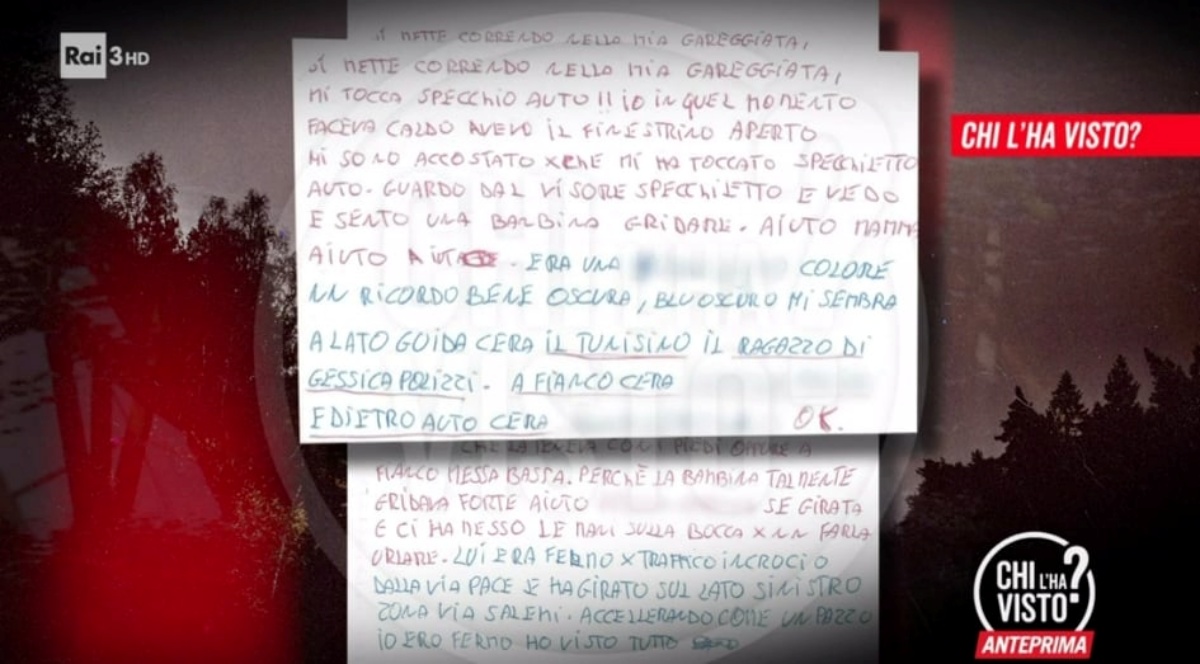 Rai 3HD
SI METTE CORRENDO NELLA MIA GAREGGIATA,
SI METTE CORRENDO NELLA MIA GAREGGIATA,
MI TOCCA SPECCHIO AUTO !! IO IN QUEL MOMENTO
FACEVA CALDO AVEVO IL FINESTRINO APERTO
MI SONO ACCOSTATO XCHE MI HA TOCCATO SPECCHIETTO
AUTO. GUARDO DAL VISORE SPECCHIETTO E VEDO
E SENTO UNA BAMBINA GRIDARE. AIUTO MAMMA
AIUTO AIUTO. ERA UNA COLORE
NN RICORDO BENE OSCURA, BLU OSCURO MI SEMBRA
A LATO GUIDA CERA IL TUNISINO IL RAGAZZO DI
GESSICA POLIZZI. A FIANCO CERA
E DIETRO AUTO CERA OK.
CHE LA TENEVA CON I PIEDI OPPURE A
FIANCO MESSA BASSA. PERCHÈ LA BAMBINA TALMENTE
GRIDAVA FORTE AIUTO SE GIRATA
E CI HA MESSO LE MANI SULLA BOCCA X NN FARLA
URLARE. LUI ERA FERMO X TRAFFICO INCROCIO
DALLA VIA PACE SE HA GIRATO SUL LATO SINISTRO
ZONA VIA SALEMI. ACCELLERANDO COME UN PAZZO
IO ERO FERMO HO VISTO TUTTO
CHI L'HA VISTO?
CHI L'HA
VISTO?
ANTEPRIMA